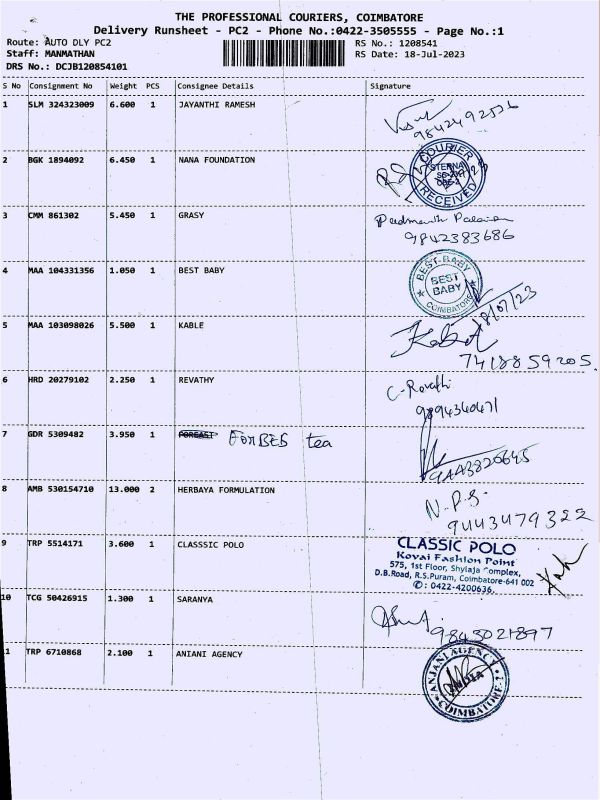 THE PROFESSIONAL COURIERS, COIMBATORE
Delivery Runsheet - PC2 - Phone No.:0422-3505555 - Page No.:1
Route: AUTO DLY PC2
RS No.: 1208541
Staff: MANMATHAN
RS Date: 18-Jul-2023
DRS No.: DCJB120854101
S No Consignment No Weight PCS Consignee Details Signature
1 SLM 324323009 6.600 1 JAYANTHI RAMESH
9842492526
2 BGK 1894092 6.450 1 NANA FOUNDATION
COURIER
RECEIVED
3 CMM 861302 5.450 1 GRASY
9842383686
4 MAA 104331356 1.050 1 BEST BABY
BEST BABY
BEST
BABY
COIMBATORE
18/07/23
5 MAA 103098026 5.500 1 KABLE
7418859205.
6 HRD 20279102 2.250 1 REVATHY
C. Revathi
9894340471
7 GDR 5309482 3.950 1 FORBES tea
9443826645
8 AMB 530154710 13.000 2 HERBAYA FORMULATION
N.P.S.
9443479322
9 TRP 5514171 3.600 1 CLASSSIC POLO
CLASSIC POLO
Kovai Fashion Point
575, 1st Floor, Shylaja Complex,
D.B.Road, R.S.Puram, Coimbatore-641 002
✆ : 0422-4200636
10 TCG 50426915 1.300 1 SARANYA
9843021897
11 TRP 6710868 2.100 1 ANIANI AGENCY
ANJANI AGENCY
COIMBATORE-1